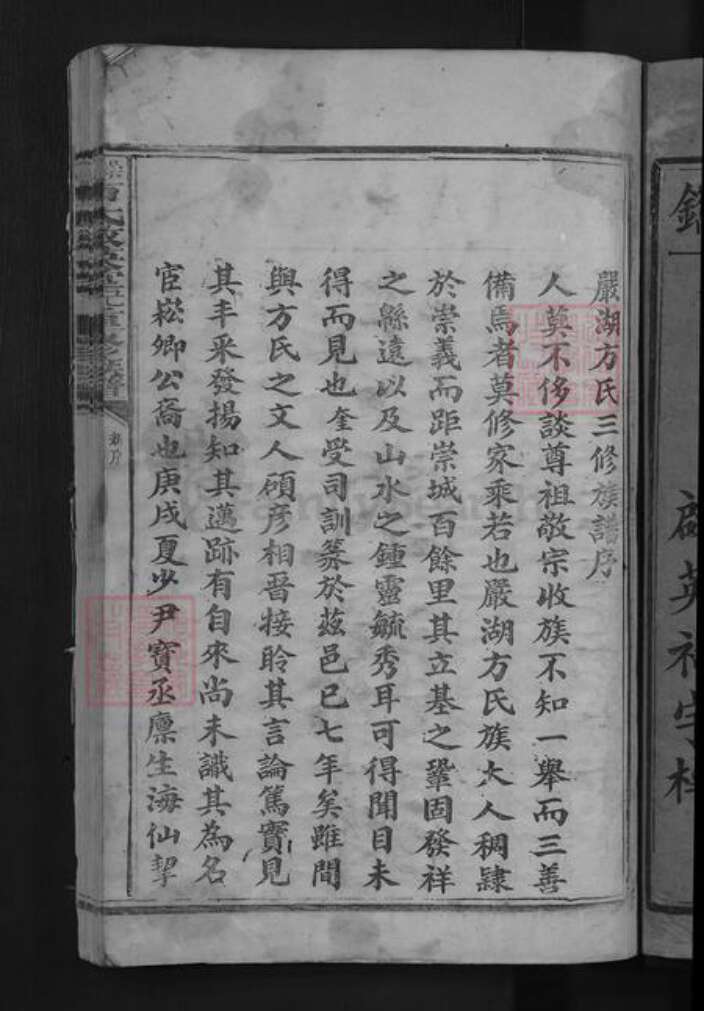 嚴湖方氏三修族譜序
人莫不侈談尊祖敬宗收族不知一舉而三善
備焉者莫修家乘若也嚴湖方氏族大人稠隸
於崇義而距崇城百餘里其立基之鞏固發祥
之緜遠以及山水之鍾靈毓秀耳可得聞目未
得而見也奎受司訓篆於茲邑已七年矣雖間
與方氏之文人碩彥相晋接聆其言論篤實見
其丰采發揚知其邁跡有自來尚未識其為名
宦崧卿公裔也庚戌夏少尹寶丞廪生海仙挈